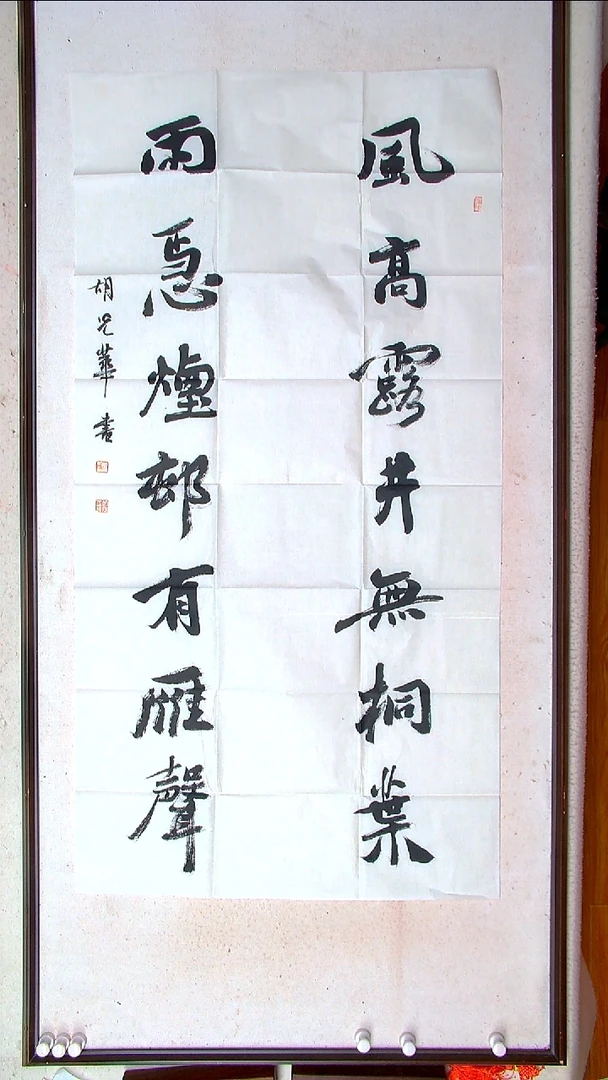 風高露井無桐葉
雨急煙邨有雁聲
胡華書